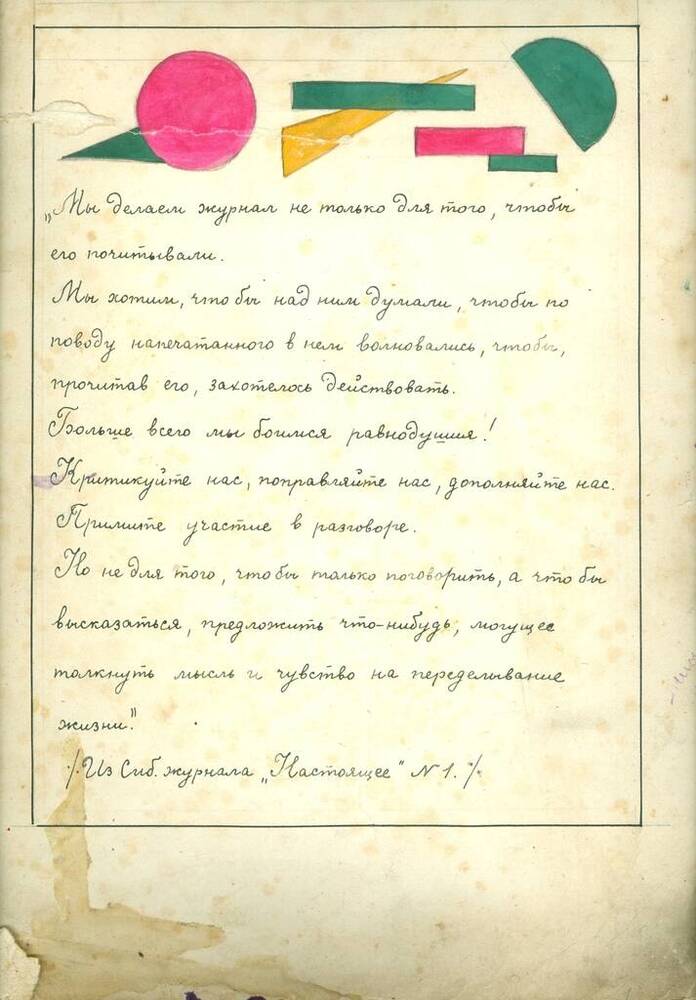 „Мы делаем журнал не только для того, чтобы
его почитывали.
Мы хотим, что бы над ним думали, чтобы по
поводу напечатанного в нем волновались, чтобы,
прочитав его, захотелось действовать.
Больше всего мы боимся равнодушия!
Критикуйте нас, поправляйте нас, дополняйте нас.
Примите участие в разговоре.
Но не для того, что бы только поговорить, а что бы
высказаться, предложить что-нибудь, могущее
толкнуть мысль и чувство на переделывание
жизни."
/Из Сиб. журнала „Настоящее" N 1./